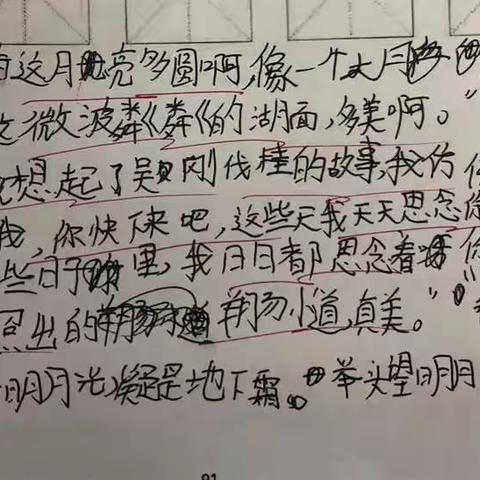 这月亮多圆啊,像一个大月
微波粦《粦《的湖面,多美啊。”
想起了吴刚伐桂的故事,我仿
我,你快下来吧,这些天我天天思念你
些日子里,我日日都思念着你
照出的羊肠小道,真美。”
明月光,凝是地下霜。举头望明月
91